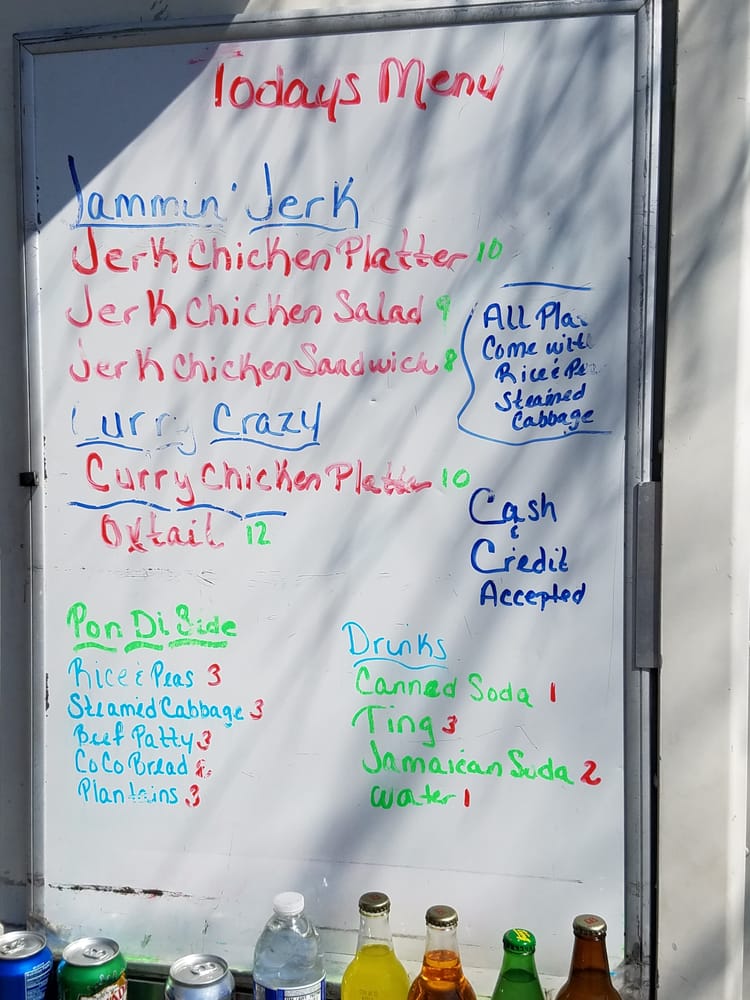 Todays Menu
Jammin' Jerk
Jerk Chicken Platter 10
Jerk Chicken Salad 9
Jerk Chicken Sandwich 8
All
Come with
Rice &
Steamed
Cabbage
Curry Crazy
Curry Chicken Platter 10
Oxtail 12
Cash
&
Credit
Accepted
Pon Di Side
Rice & Peas 3
Steamed Cabbage 3
Beef Patty 3
CoCo Bread
Plantains 3
Drinks
Canned Soda 1
Ting 3
Jamaican Soda 2
Water 1